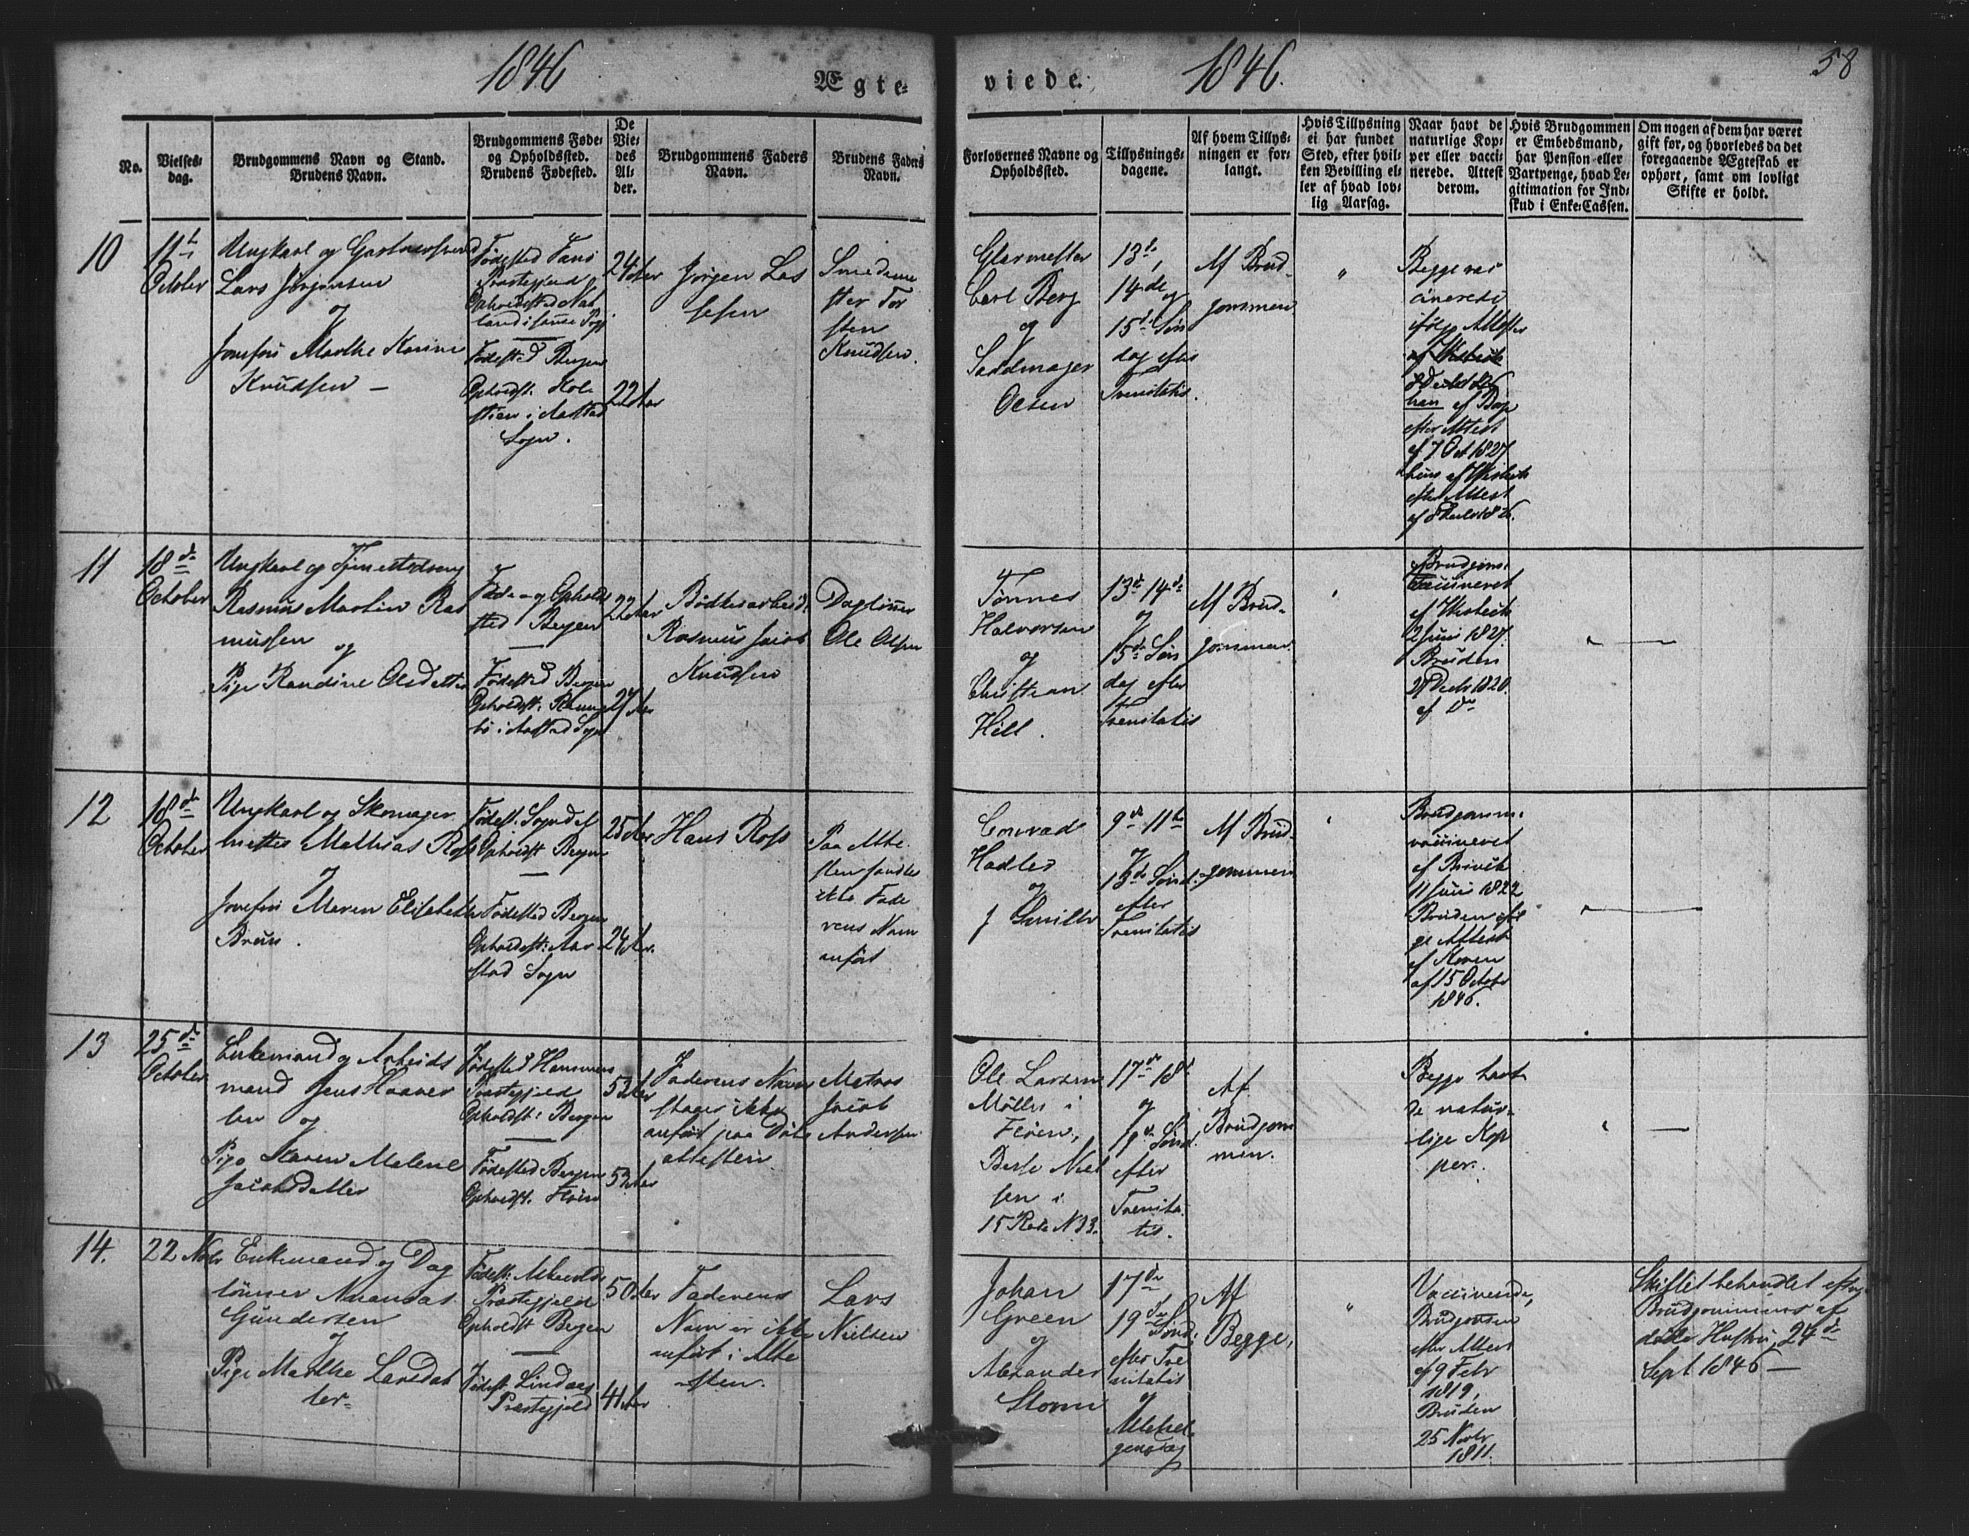 1846
Ægte-
viede.
1846.
58
No.
Vielses-
dag.
Brudgommens Navn og Stand.
Brudens Navn.
Brudgommens Føde-
og Opholdssted.
Brudens Fødested.
De
Vie-
des
Al-
der.
Brudgommens Faders
Navn.
Brudens Faders
Navn.
Forlovernes Navne og
Opholdssted.
Tillysnings-
dagene.
Af hvem Tillys-
ningen er for-
langt.
Hvis Tillysning
ei har fundet
Sted, efter hvil-
ken Bevilling el-
ler af hvad lov-
lig Aarsag.
Naar havt de
naturlige Kop-
per eller vacci-
nerede. Attest
derom.
Hvis Brudgommen
er Embedsmand,
har Pension eller
Vartpenge, hvad Le-
gitimation for Ind-
skud i Enke-Cassen.
Om nogen af dem har været
gift før, og hvorledes da det
foregaaende Ægteskab er
ophørt, samt om lovligt
Skifte er holdt.
10
11te
October
Ungkarl og
Lars Jørgensen
og
Jomfru Marthe Karine
Knudsen —
Fødested Fans
Præstegjeld
Opholdssted
land i samme
Fødested Bergen
Opholdst.
stien i Aarstad
Sogn.
24 Aar
22 Aar
Jørgen Las
sesen
Smedeme
ster Tor
sten
Knudsen.
Glarmester
Carl Berg
og
Sadelmager
Olsen
13de,
14de og
15de Søn
dag efter
Trenitatis.
Af Brud-
gommen
"
Begge vac
cinerede
ifølge Attester
han af
efter Attest
af 7 Oct 1827
hun af
efter Attest
11
18de
October
Ungkarl og
Rasmus Martin Ras
mussen
og
Pige Randine Olsdatter
Føde- og Opholds
sted Bergen
Fødested Bergen
Opholdst:
i Aarstad Sogn
22 Aar
27 Aar
Bødkerarbeid.
Rasmus Jacob
Knudsen
Daglønner
Ole Olsen
Tønnes
Halvorsen
og
Christian
Hill.
13de 14de
og
15de Søn
dag efter
Trenitatis
Af Brud-
gommen.
Brudgom
vaccineret
af
2 Juni 1827.
Bruden
1820.
af Do
12
18de
October
Ungkarl og Skomager
mester Mathias Ross
og
Jomfru Maren Elisabeth
Brun.
Fødest. Sogndal
Opholdst Bergen
Fødested Bergen
Opholdst: Aar
stad Sogn
25 Aar
24 Aar.
Hans Ross
Paa Atte
sten fandtes
ikke Fade
rens Navn
anført
Conrad
Hadler
og
J Smith
9de 11te
og
13de Sønd.
efter
Trenitatis
Af Brud-
gommen
Brudgomm.
vaccineret
af
11 Juni 1822
Bruden iføl
ge Attest
af Koren
af 15 October
1846.
13
25de
October
Enkemand og Arbeids
mand Jens
og
Pige Karen Malene
Jacobsdatter
Fødested
Præstegjeld
Opholdst: Bergen
Fødested Bergen
Opholdst. Fløen
53 Aar
53 Aar
Faderens Navn
staaer ikke
anført paa Døbe
attesten.
Matros
Jacob
Andersen
Ole Larsen
Møller i
Fløen,
Berle Niel
sen i
15 Rode N 33.
17de 18de
og
19de Sønd.
efter
Trenita-
tis.
Af
Brudgom
men.
Begge havt
de natur-
lige Kop
per.
14.
22 Novbr
Enkemand og Dag
lønner
Gundersen
og
Pige Marthe Larsdat
ter
Fødest:
Præstegjeld
Opholdst Bergen
Fødest. Lindaas
Præstegjeld
50 Aar
41 Aar
Faderens
Navn er ikke
anført i Atte
sten.
Lars
Nielsen
Johan
Green
og
Alexander
Storm
17de,
19de Sønd.
efter Tre
nitatis
og
Allehel-
gensdag
Af
Begge,
"
Vaccinerede,
Brudgommen
efter Attest
af 9 Febr
1819,
Bruden
25 Novbr
1811.
Skiftet behandlet efter
Brudgommens af
døde Hustru, 24de
Sept 1846 —